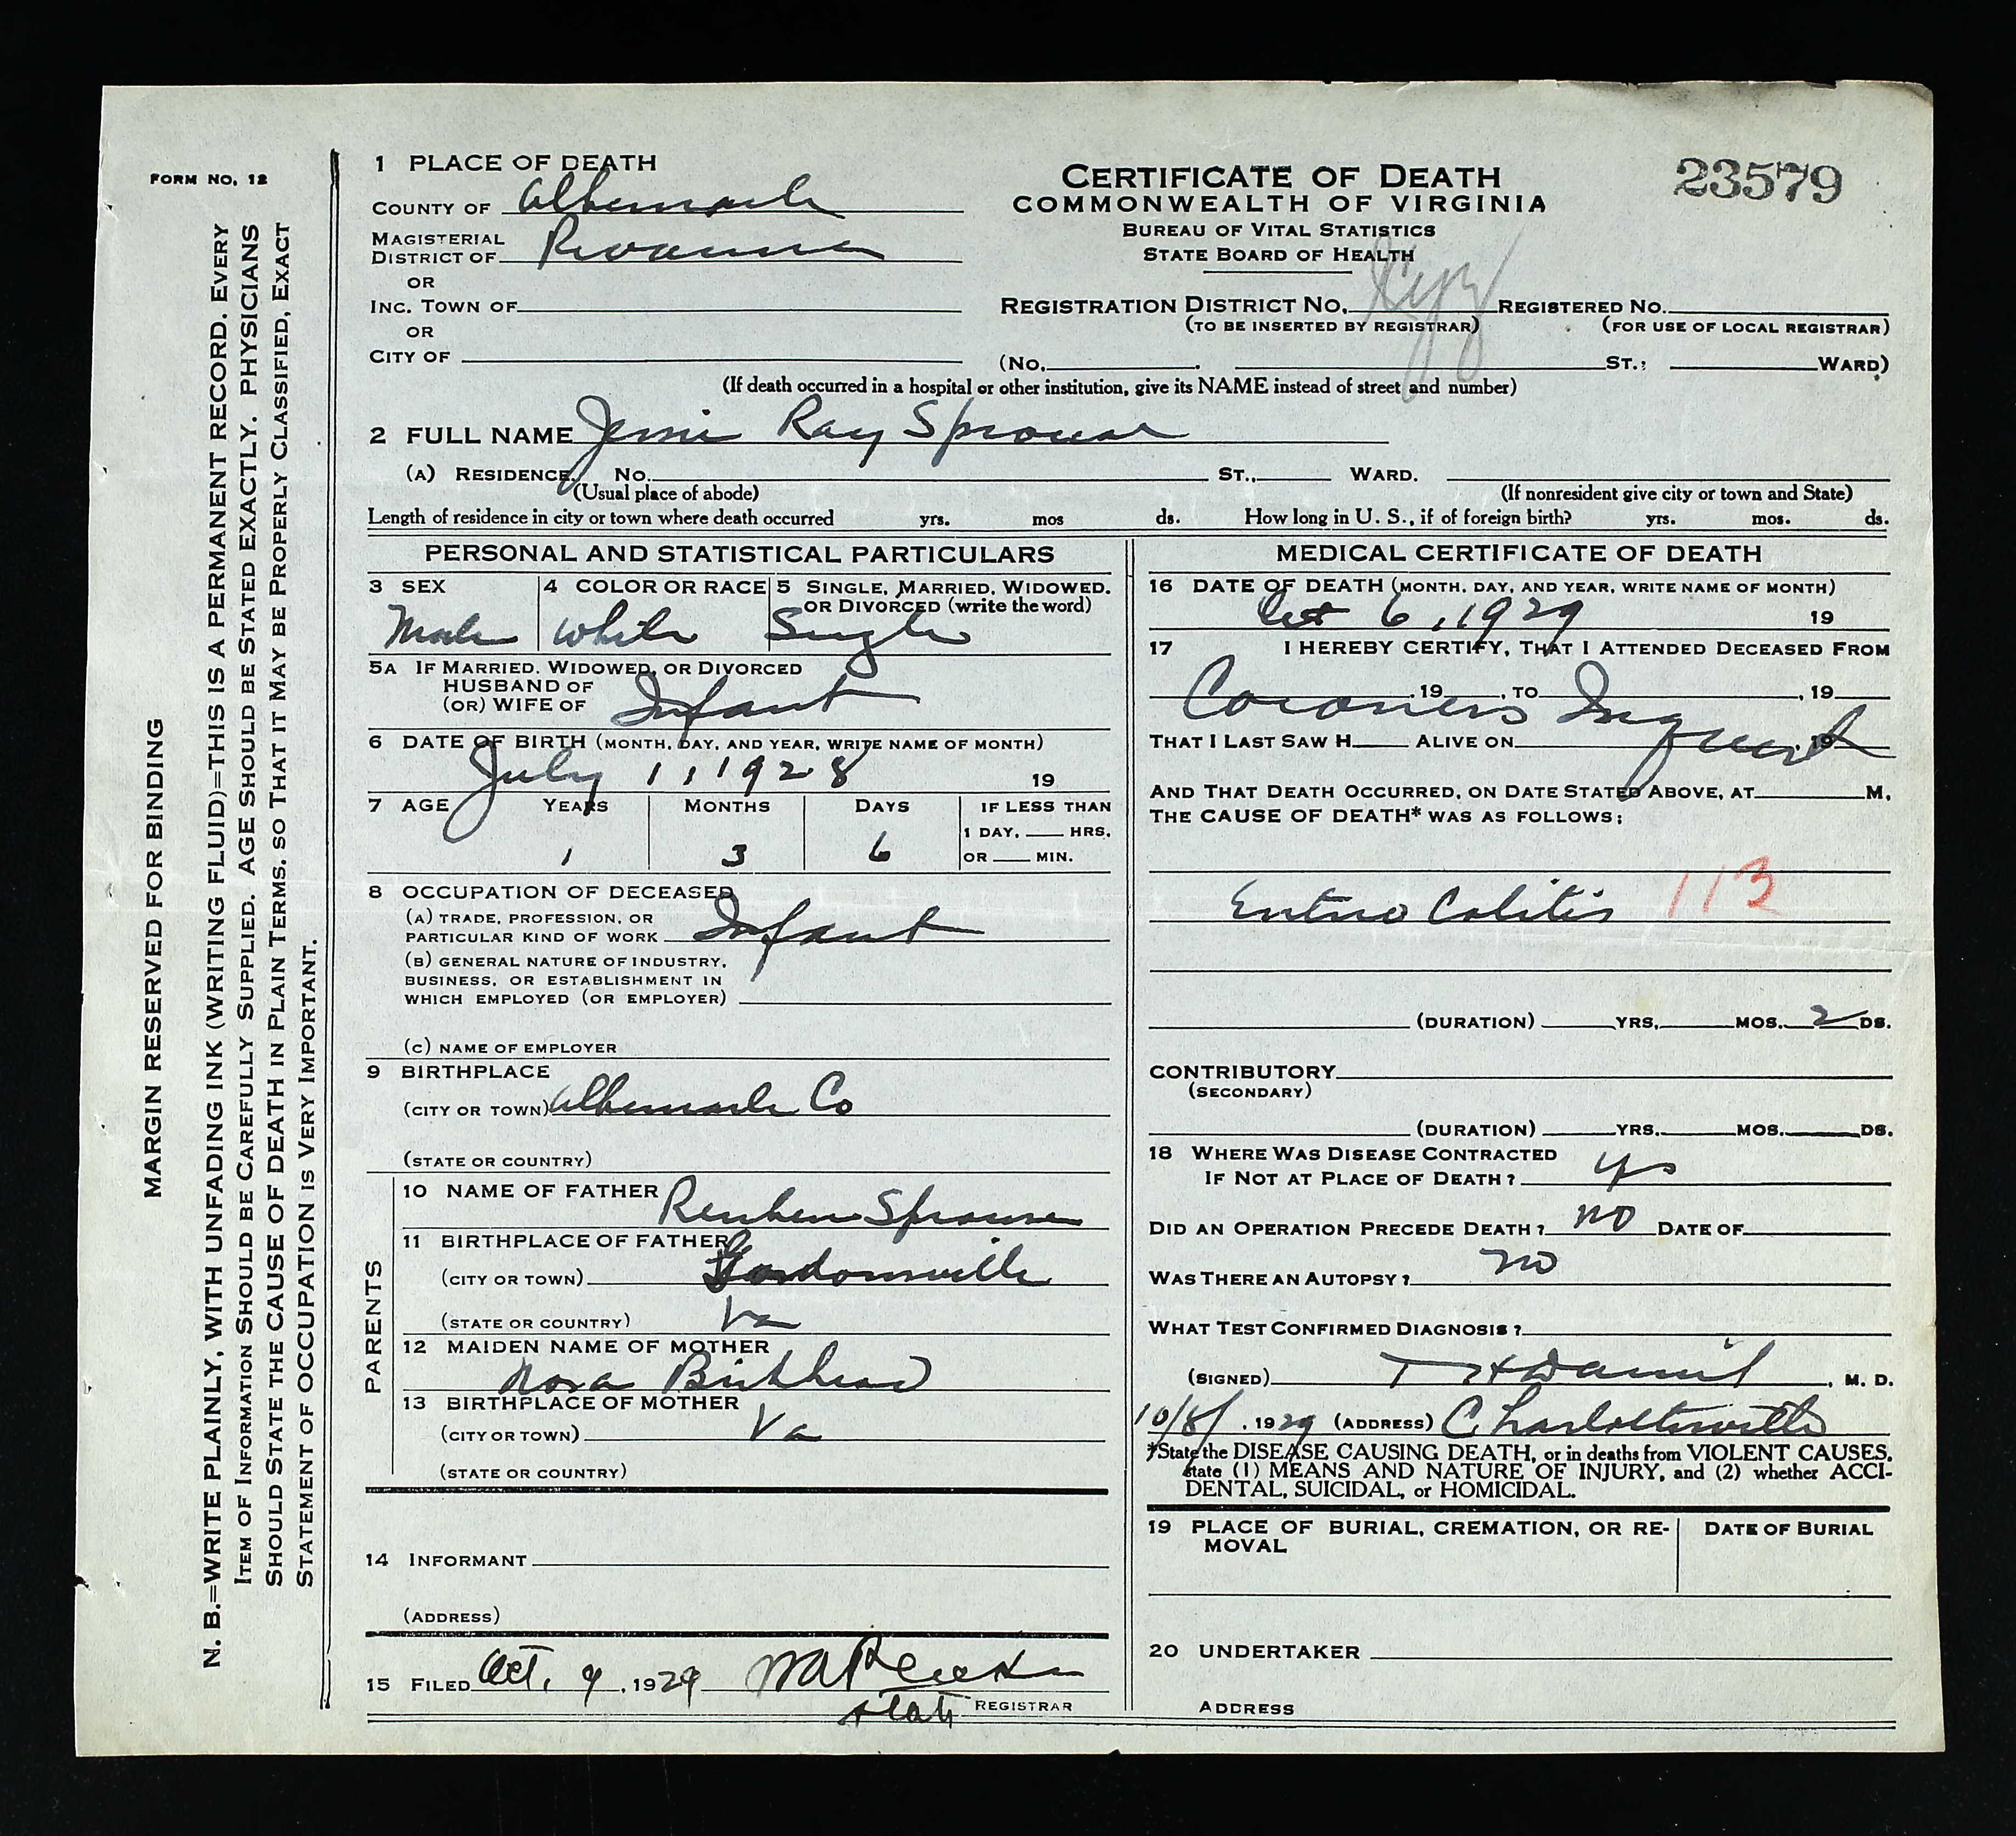 FORM NO. 12
MARGIN RESERVED FOR BINDING
N. B.=WRITE PLAINLY, WITH UNFADING INK (WRITING FLUID)=THIS IS A PERMANENT RECORD. EVERY
ITEM OF INFORMATION SHOULD BE CAREFULLY SUPPLIED. AGE SHOULD BE STATED EXACTLY. PHYSICIANS
SHOULD STATE THE CAUSE OF DEATH IN PLAIN TERMS, SO THAT IT MAY BE PROPERLY CLASSIFIED, EXACT
STATEMENT OF OCCUPATION IS VERY IMPORTANT.
1 PLACE OF DEATH
COUNTY OF Albemarle
MAGISTERIAL
DISTRICT OF Rivanna
OR
INC. TOWN OF
OR
CITY OF
CERTIFICATE OF DEATH
COMMONWEALTH OF VIRGINIA
BUREAU OF VITAL STATISTICS
STATE BOARD OF HEALTH
23579
REGISTRATION DISTRICT NO. REGISTERED NO.
(TO BE INSERTED BY REGISTRAR) (FOR USE OF LOCAL REGISTRAR)
(NO. ST.; WARD)
(If death occurred in a hospital or other institution, give its NAME instead of street and number)
2 FULL NAME Ray Sprouse
(A) RESIDENCE. NO. ST., WARD.
(Usual place of abode) (If nonresident give city or town and State)
Length of residence in city or town where death occurred yrs. mos ds. How long in U. S., if of foreign birth? yrs. mos. ds.
PERSONAL AND STATISTICAL PARTICULARS
3 SEX 4 COLOR OR RACE 5 SINGLE, MARRIED, WIDOWED,
OR DIVORCED (write the word)
Male White Single
5A IF MARRIED, WIDOWED, OR DIVORCED
HUSBAND OF
(OR) WIFE OF Infant
6 DATE OF BIRTH (MONTH, DAY, AND YEAR, WRITE NAME OF MONTH)
July 1, 1928 19
7 AGE YEARS MONTHS DAYS IF LESS THAN
1 DAY, HRS.
1 3 6 OR MIN.
8 OCCUPATION OF DECEASED
(A) TRADE, PROFESSION, OR
PARTICULAR KIND OF WORK Infant
(B) GENERAL NATURE OF INDUSTRY,
BUSINESS, OR ESTABLISHMENT IN
WHICH EMPLOYED (OR EMPLOYER)
(C) NAME OF EMPLOYER
9 BIRTHPLACE
(CITY OR TOWN) Albemarle Co
(STATE OR COUNTRY)
PARENTS
10 NAME OF FATHER Reuben Sprouse
11 BIRTHPLACE OF FATHER
(CITY OR TOWN) Gordonsville
(STATE OR COUNTRY) Va
12 MAIDEN NAME OF MOTHER
Nora Birkhead
13 BIRTHPLACE OF MOTHER
(CITY OR TOWN) Va
(STATE OR COUNTRY)
14 INFORMANT
(ADDRESS)
15 FILED Oct. 9, 1929
REGISTRAR
MEDICAL CERTIFICATE OF DEATH
16 DATE OF DEATH (MONTH, DAY, AND YEAR, WRITE NAME OF MONTH)
Oct 6, 1929 19
17 I HEREBY CERTIFY, THAT I ATTENDED DECEASED FROM
, 19 , TO , 19
Coroners Inquest
THAT I LAST SAW H ALIVE ON , 19
AND THAT DEATH OCCURRED, ON DATE STATED ABOVE, AT M.
THE CAUSE OF DEATH* WAS AS FOLLOWS:
Entero Colitis 113
(DURATION) YRS. MOS. 2 DS.
CONTRIBUTORY
(SECONDARY)
(DURATION) YRS. MOS. DS.
18 WHERE WAS DISEASE CONTRACTED
IF NOT AT PLACE OF DEATH? yes
DID AN OPERATION PRECEDE DEATH? no DATE OF
WAS THERE AN AUTOPSY? no
WHAT TEST CONFIRMED DIAGNOSIS?
(SIGNED) Daniel, M. D.
10/8/, 1929 (ADDRESS) Charlottesville
*State the DISEASE CAUSING DEATH, or in deaths from VIOLENT CAUSES,
state (1) MEANS AND NATURE OF INJURY, and (2) whether ACCI-
DENTAL, SUICIDAL, or HOMICIDAL.
19 PLACE OF BURIAL, CREMATION, OR RE-
MOVAL
DATE OF BURIAL
20 UNDERTAKER
ADDRESS